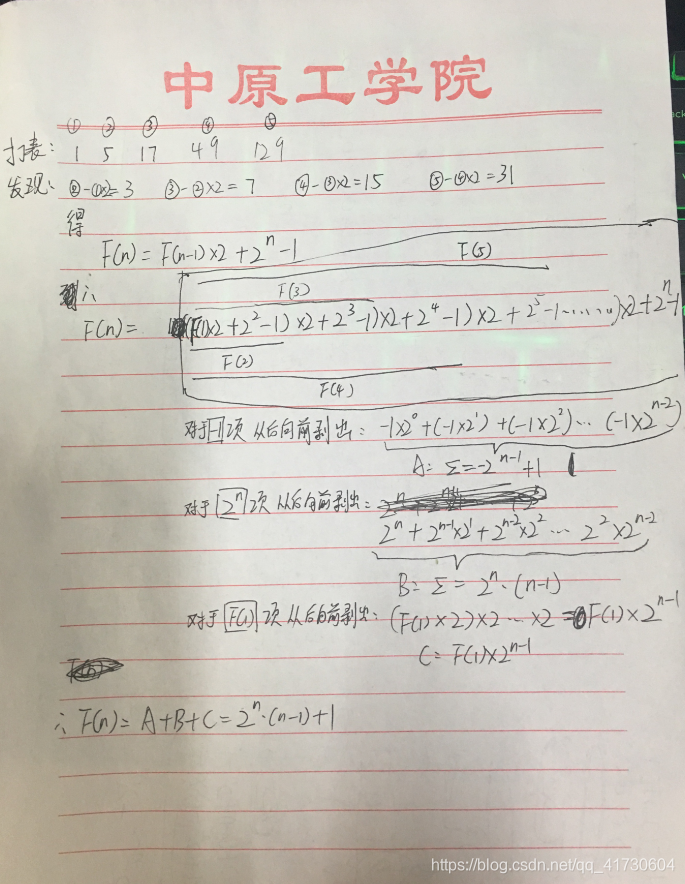 中原工学院
① ② ③ ④ ⑤
打表: 1 5 17 49 129
发现: ②-①×2=3 ③-②×2=7 ④-③×2=15 ⑤-④×2=31
得
F(n)=F(n-1)×2+2^n-1
F(5)
F(3)
∴
F(n)= (F(1)×2+2^2-1)×2+2^3-1)×2+2^4-1)×2+2^5-1……)×2+2^n-1
F(2)
F(4)
对于[-1]项从后向前剥出: -1×2^0+(-1×2^1)+(-1×2^2)…(-1×2^{n-2})
A: Σ=-2^{n-1}+1
对于[2^n]项从后向前剥出:
2^n+2^{n-1}×2^1+2^{n-2}×2^2…2^2×2^{n-2}
B=Σ=2^n·(n-1)
对于[F(1)]项从后向前剥出: (F(1)×2)×2…×2=F(1)×2^{n-1}
C=F(1)×2^{n-1}
∴F(n)=A+B+C=2^n·(n-1)+1
https://blog.csdn.net/qq_41730604